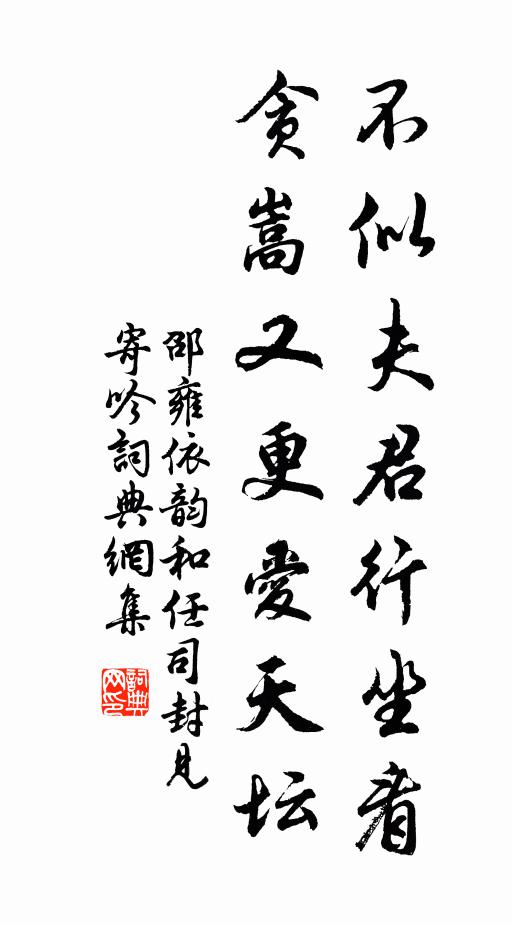 不似夫君行坐看
贪嵩又更愛天坛
邵雍依韵和任司封見
寄吟詞典網集
詞典网印